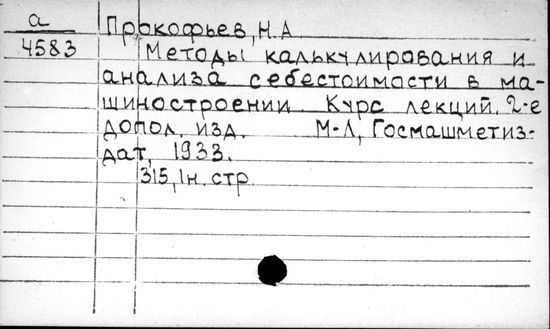 а
4583
Прокофьев, Н.А
Методы калькулирования и
анализа себестоимости в ма-
шиностроении. Курс лекций. 2-е
допол. изд. М-Л, Госмашметиз-
дат, 1933.
315, 1н. стр.